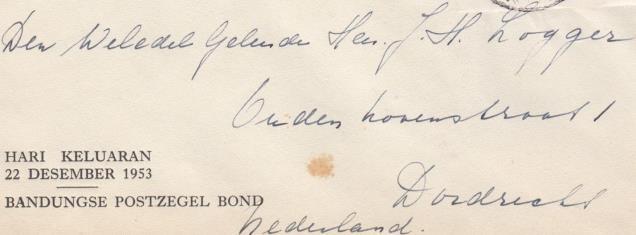 Den Weledel Geleerde Heer. J. H. Logger
Oudenhovenstraat 1
HARI KELUARAN
22 DESEMBER 1953
BANDUNGSE POSTZEGEL BOND
Dordrecht
Nederland.